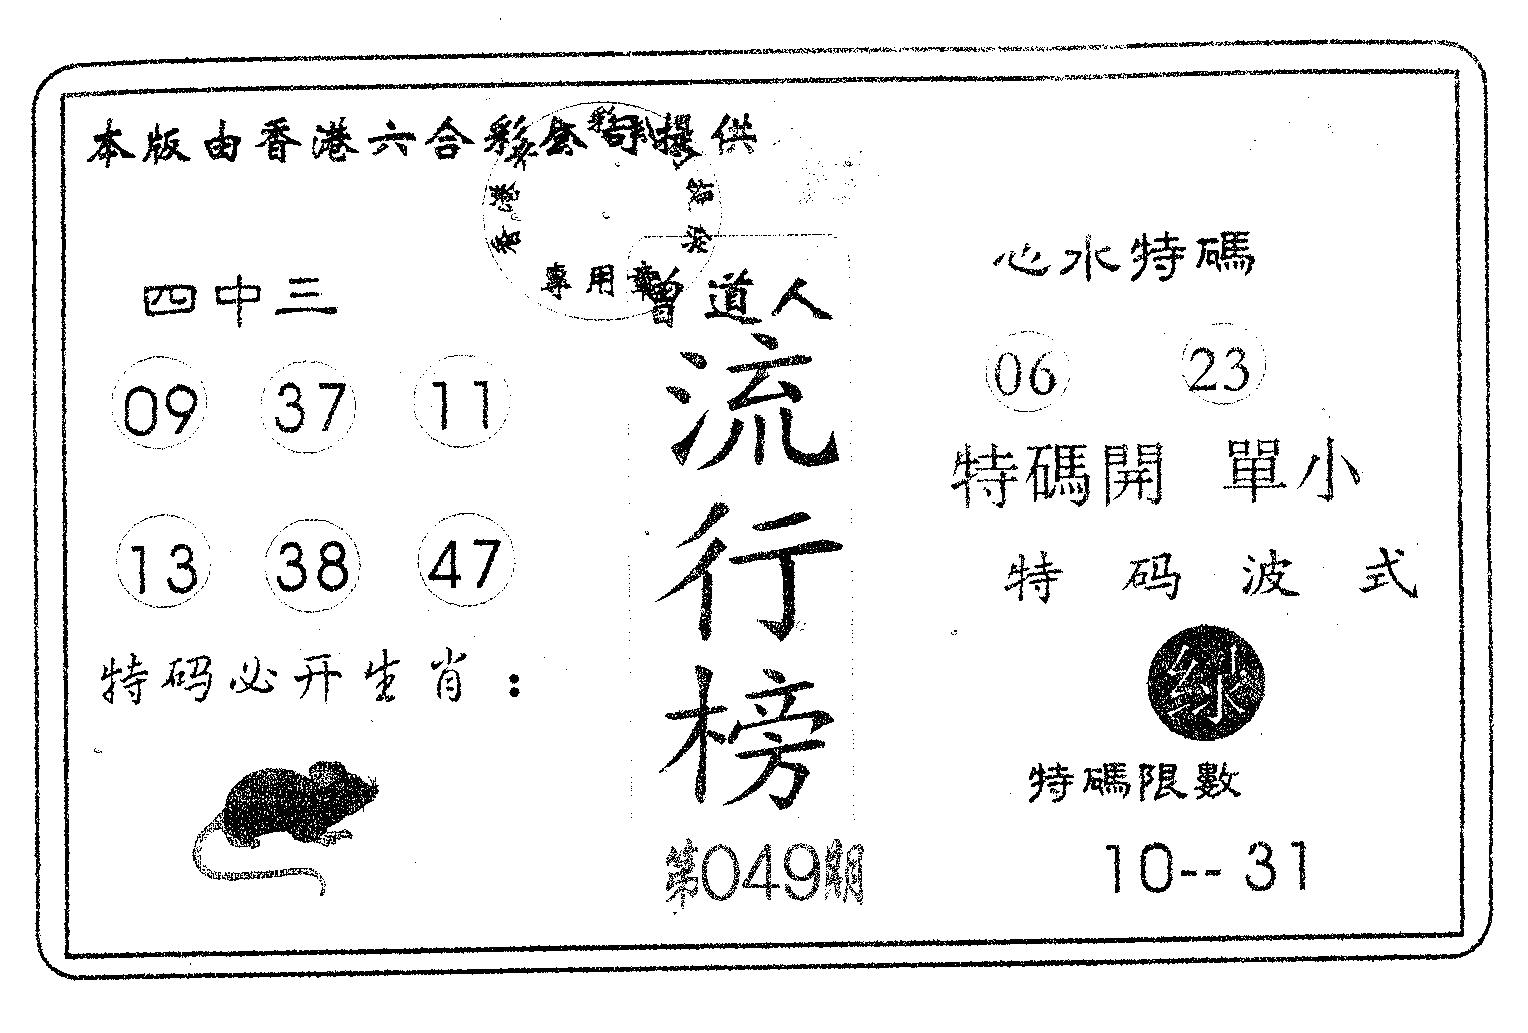 本版由香港六合彩公司提供
專用章
四中三
09 37 11
13 38 47
特码必开生肖：
曾道人
流行榜
第049期
心水特碼
06 23
特碼開 單小
特码波式
绿
特碼限數
10-- 31